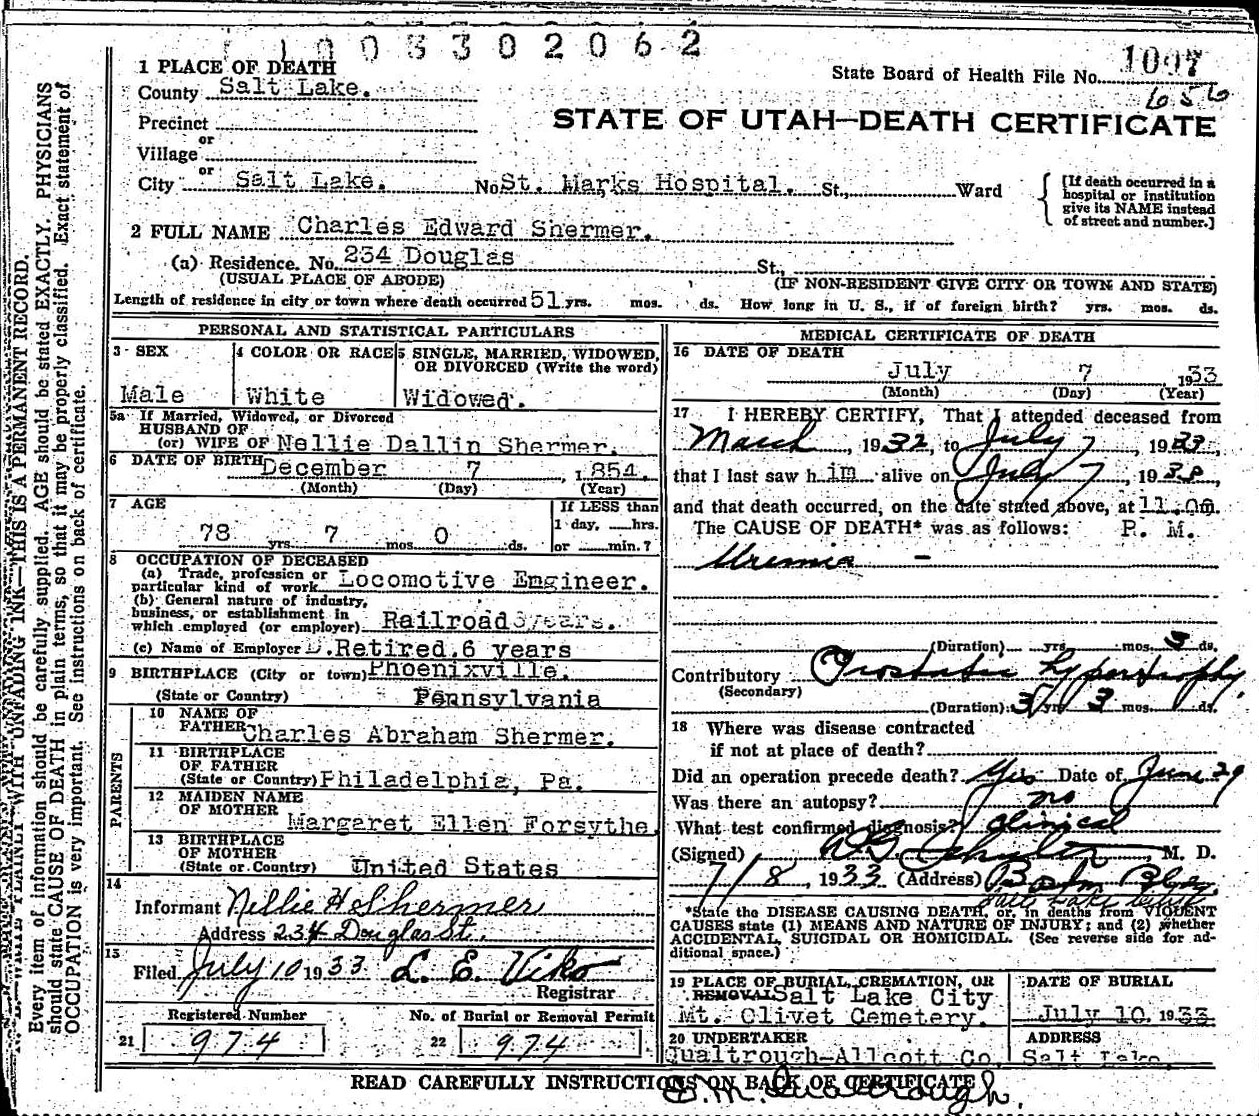 1003302062
1 PLACE OF DEATH
State Board of Health File No. 1097
County Salt Lake.
656
STATE OF UTAH—DEATH CERTIFICATE
Precinct
or
Village
or
City Salt Lake. No. St. Marks Hospital. St., Ward
[If death occurred in a
hospital or institution
give its NAME instead
of street and number.]
2 FULL NAME Charles Edward Shermer.
(a) Residence. No. 234 Douglas St.,
(USUAL PLACE OF ABODE) (IF NON-RESIDENT GIVE CITY OR TOWN AND STATE)
Length of residence in city or town where death occurred 51 yrs. mos. ds. How long in U. S., if of foreign birth? yrs. mos. ds.
PERSONAL AND STATISTICAL PARTICULARS
3 SEX
Male
4 COLOR OR RACE
White
5 SINGLE, MARRIED, WIDOWED,
OR DIVORCED (Write the word)
Widowed.
5a If Married, Widowed, or Divorced
HUSBAND OF
(or) WIFE OF Nellie Dallin Shermer.
6 DATE OF BIRTH December 7, 1854.
(Month) (Day) (Year)
7 AGE
78 yrs. 7 mos. 0 ds.
If LESS than
1 day, ......hrs.
or ......min.?
8 OCCUPATION OF DECEASED
(a) Trade, profession or
particular kind of work Locomotive Engineer.
(b) General nature of industry,
business, or establishment in
which employed (or employer) Railroad years.
(c) Name of Employer Retired.6 years
9 BIRTHPLACE (City or town) Phoenixville.
(State or Country) Pennsylvania
PARENTS
10 NAME OF
FATHER Charles Abraham Shermer.
11 BIRTHPLACE
OF FATHER
(State or Country) Philadelphia, Pa.
12 MAIDEN NAME
OF MOTHER Margaret Ellen Forsythe
13 BIRTHPLACE
OF MOTHER
(State or Country) United States
14
Informant Nellie H Shermer
Address 234 Douglas St.
15
Filed July 10 1933 L. E. Viko
Registrar
Registered Number No. of Burial or Removal Permit
21 974 22 974
MEDICAL CERTIFICATE OF DEATH
16 DATE OF DEATH
July 7 1933
(Month) (Day) (Year)
17 I HEREBY CERTIFY, That I attended deceased from
March, 1932, to July 7, 1933,
that I last saw him alive on July 7, 1933,
and that death occurred, on the date stated above, at 11.00m.
The CAUSE OF DEATH* was as follows: P. M.
Uremia -
(Duration) yrs mos. 3 ds.
Contributory Prostatic hypertrophy.
(Secondary)
(Duration) 3 yrs 3 mos. ds.
18 Where was disease contracted
if not at place of death?
Did an operation precede death? Yes Date of June 29
Was there an autopsy? no
What test confirmed diagnosis? Clinical
(Signed) M. D.
7/8, 1933 (Address)
Salt Lake City
*State the DISEASE CAUSING DEATH, or, in deaths from VIOLENT
CAUSES state (1) MEANS AND NATURE OF INJURY; and (2) whether
ACCIDENTAL, SUICIDAL OR HOMICIDAL. (See reverse side for ad-
ditional space.)
19 PLACE OF BURIAL, CREMATION, OR
REMOVAL Salt Lake City
Mt. Olivet Cemetery.
DATE OF BURIAL
July 10, 1933
20 UNDERTAKER
Qualtrough-Allcott Co.
ADDRESS
Salt Lake.
READ CAREFULLY INSTRUCTIONS ON BACK OF CERTIFICATE
E.M. Qualtrough.
WRITE PLAINLY WITH UNFADING INK—THIS IS A PERMANENT RECORD.
Every item of information should be carefully supplied. AGE should be stated EXACTLY. PHYSICIANS
should state CAUSE OF DEATH in plain terms, so that it may be properly classified. Exact statement of
OCCUPATION is very important. See instructions on back of certificate.